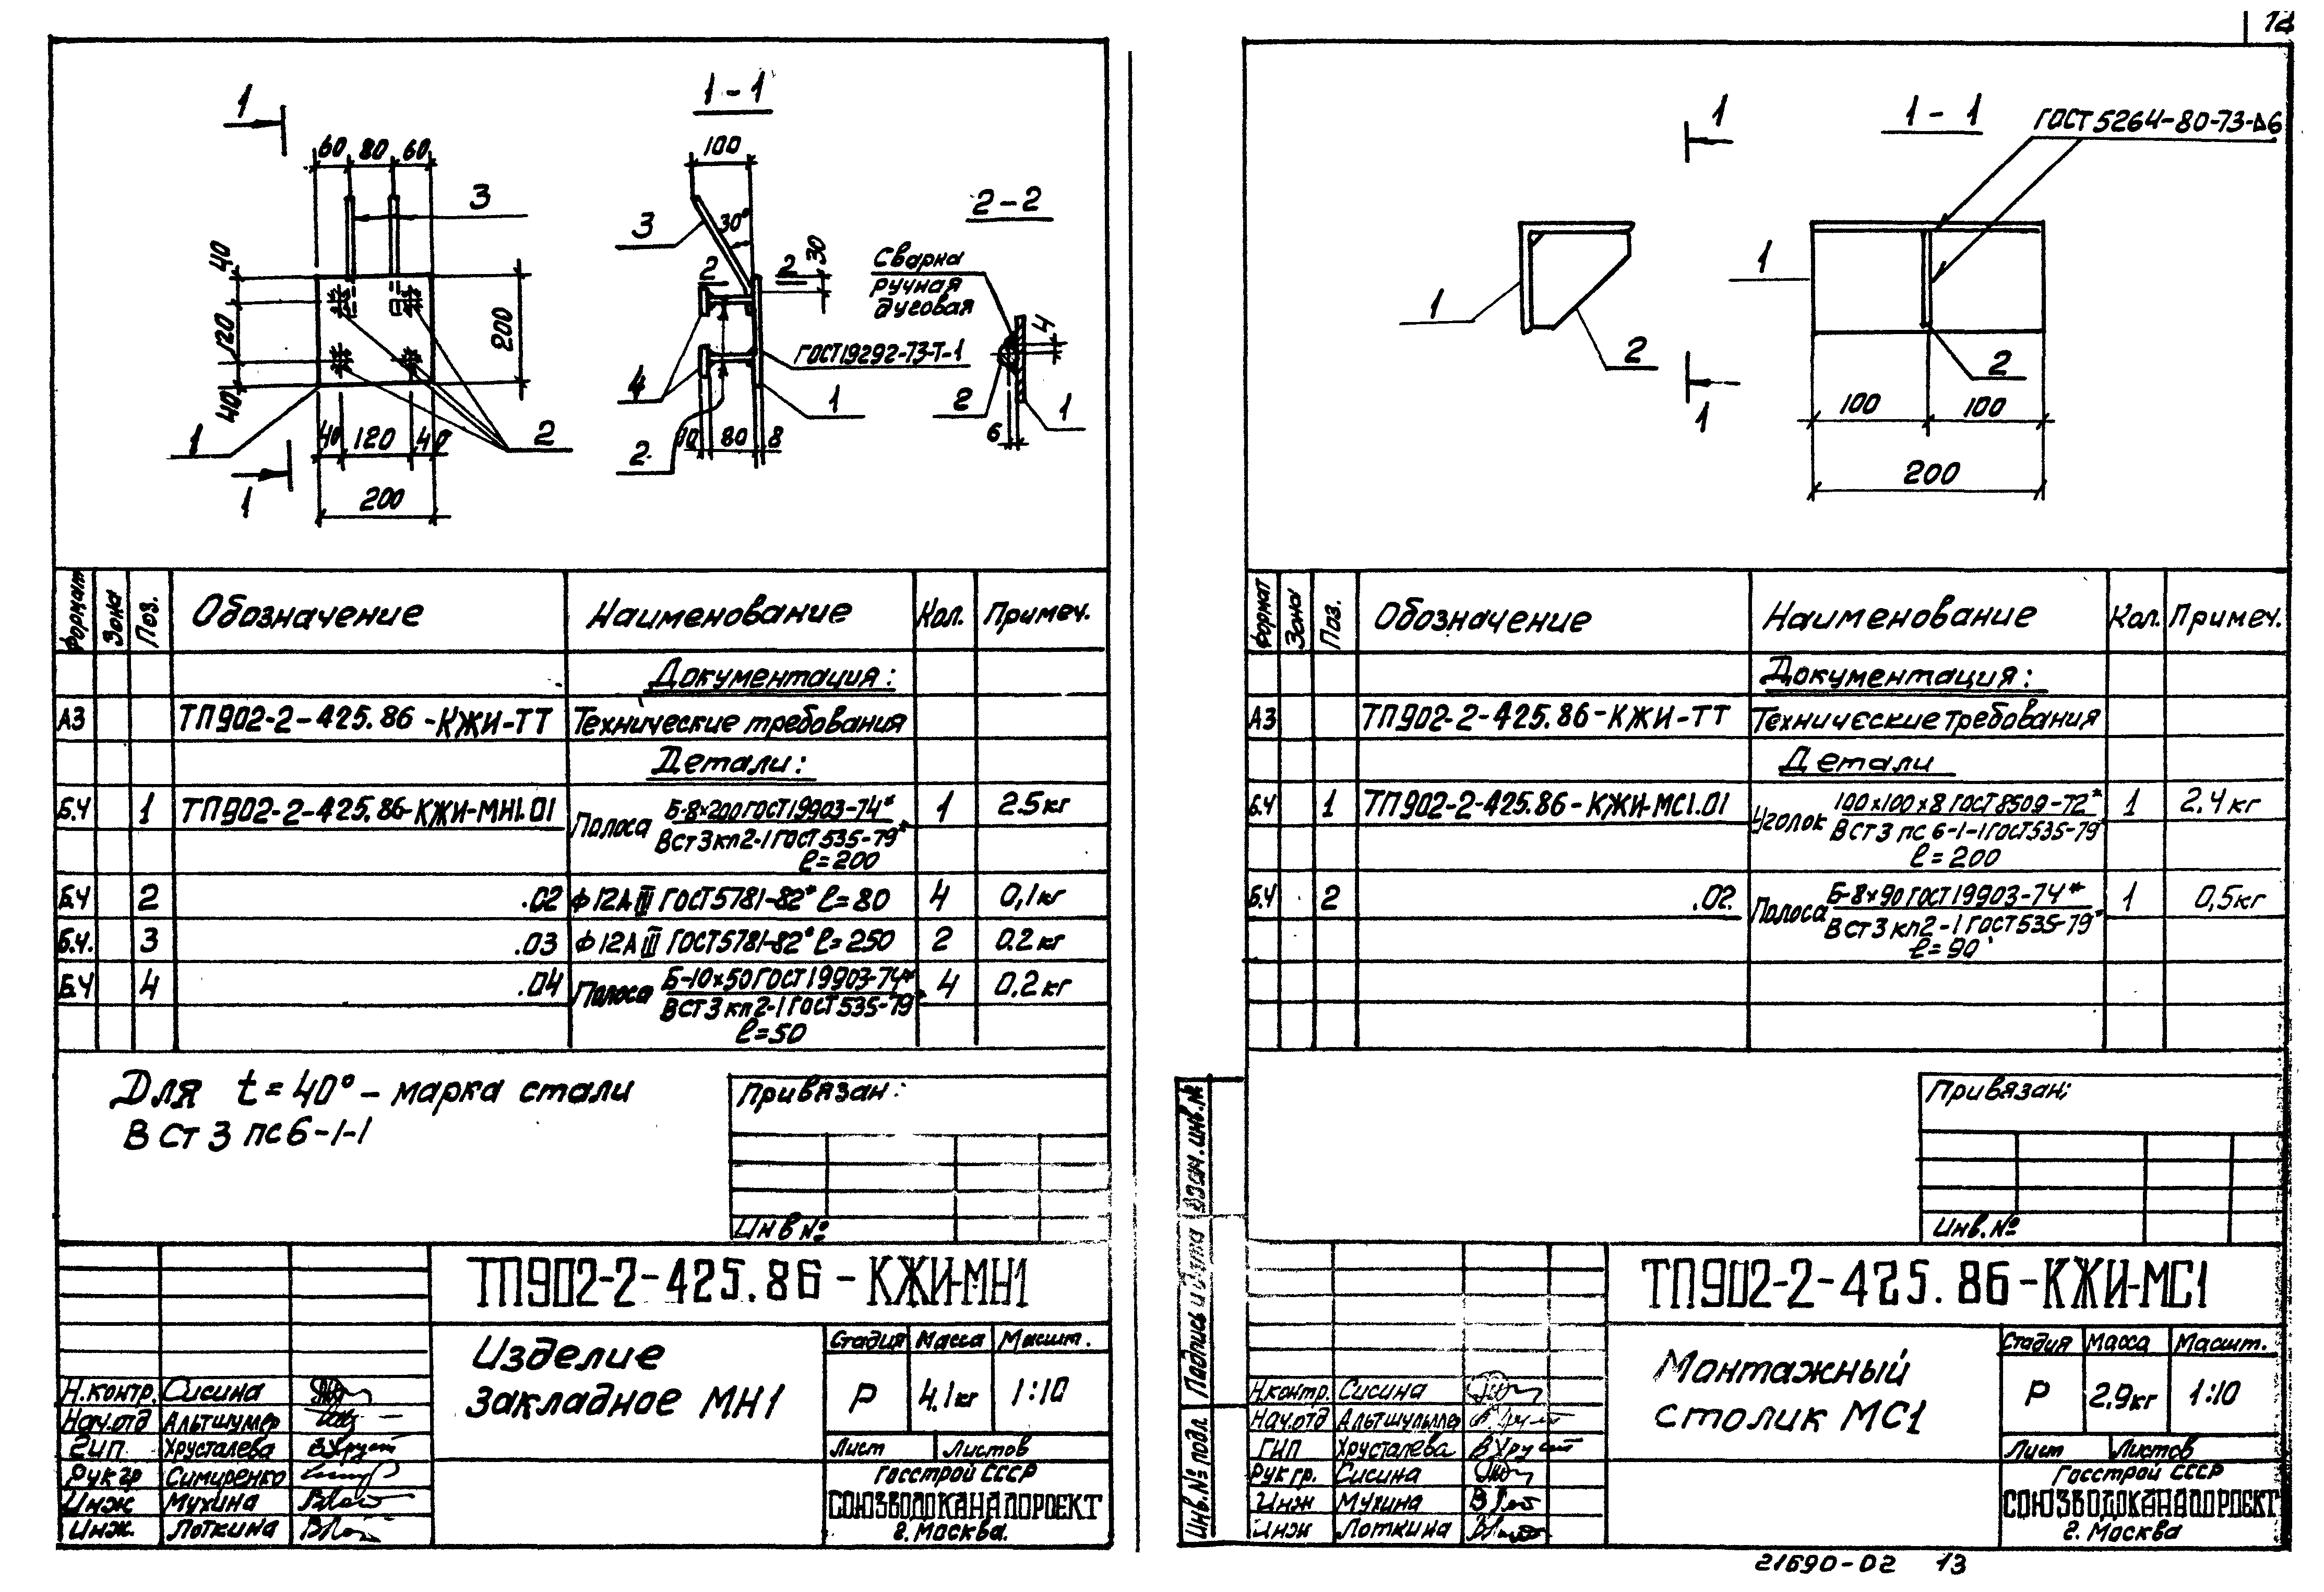 12
1
1-1
60 80 60
100
3
3
30°
2
2
30
2-2
Сварка
ручная
дуговая
40
120
40
200
4
ГОСТ19292-73-Т-1
4
1
2
1
6
1
40 120 40
2
10 80 8
2
1
200
Формат Зона Поз. Обозначение Наименование Кол. Примеч.
Документация:
А3 ТП902-2-425.86-КЖИ-ТТ Технические требования
Детали:
Б.Ч 1 ТП902-2-425.86-КЖИ-МН1.01 Полоса Б-8х200ГОСТ19903-74* 1 2.5кг
ВСт3кп2-1ГОСТ535-79*
ℓ=200
Б.Ч 2 .02 ф12АIII ГОСТ5781-82* ℓ=80 4 0,1кг
Б.Ч. 3 .03 ф12АIII ГОСТ5781-82* ℓ=250 2 0.2кг
Б.Ч 4 .04 Полоса Б-10х50ГОСТ19903-74* 4 0.2кг
ВСт3кп2-1ГОСТ535-79*
ℓ=50
Для t=40°-марка стали
ВСт3пс6-1-1
Привязан:
Инв№
ТП902-2-425.86-КЖИ-МН1
Изделие
закладное МН1
Стадия Масса Масшт.
Р 4.1кг 1:10
Лист Листов
Госстрой СССР
СОЮЗВОДОКАНАЛПРОЕКТ
г. Москва.
Н.контр. Сисина
Нач.отд Альтшулер
ГИП Хрусталева
Рук гр Симиренко
Инж Мухина
Инж. Лоткина
1
1-1
ГОСТ5264-80-73-Δ6
1
1
2
2
1
100 100
200
Формат Зона Поз. Обозначение Наименование Кол. Примеч.
Документация:
А3 ТП902-2-425.86-КЖИ-ТТ Технические требования
Детали
Б.Ч 1 ТП902-2-425.86-КЖИ-МС1.01 Уголок 100х100х8 ГОСТ8509-72* 1 2.4кг
ВСт3пс6-1-1ГОСТ535-79*
ℓ=200
Б.Ч 2 .02 Полоса Б-8х90ГОСТ19903-74* 1 0,5кг
ВСт3кп2-1ГОСТ535-79*
ℓ=90
Привязан;
Инв.№
Инв.№ подл. Подпись и дата Взам.инв.№
ТП902-2-425.86-КЖИ-МС1
Монтажный
столик МС1
Стадия Масса Масшт.
Р 2.9кг 1:10
Лист Листов
Госстрой СССР
СОЮЗВОДОКАНАЛПРОЕКТ
г. Москва
Н.контр. Сисина
Нач.отд Альтшулер
ГИП Хрусталева
Рук гр. Сисина
Инж Мухина
Инж Лоткина
21690-02 13